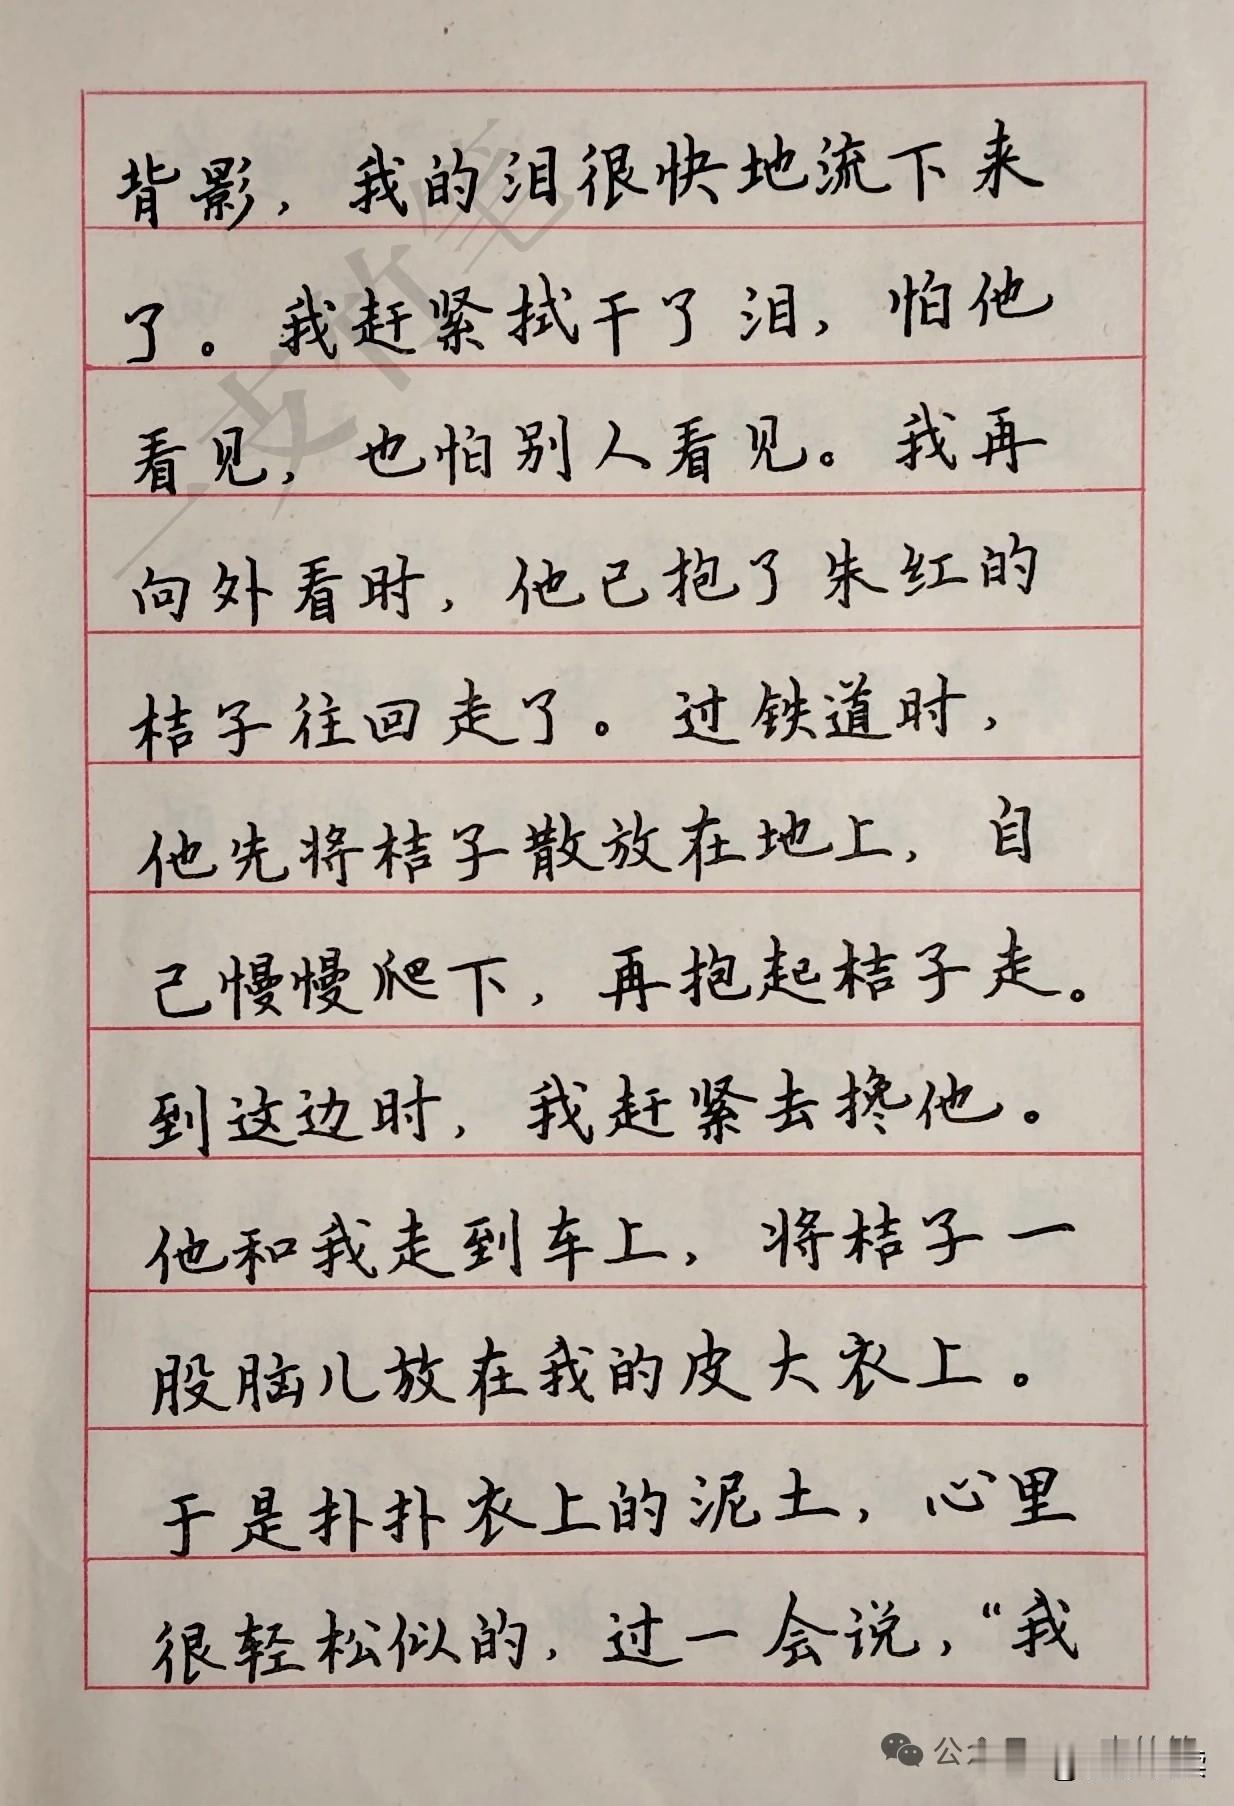 背影，我的泪很快地流下来
了。我赶紧拭干了泪，怕他
看见，也怕别人看见。我再
向外看时，他已抱了朱红的
桔子往回走了。过铁道时，
他先将桔子散放在地上，自
己慢慢爬下，再抱起桔子走。
到这边时，我赶紧去搀他。
他和我走到车上，将桔子一
股脑儿放在我的皮大衣上。
于是扑扑衣上的泥土，心里
很轻松似的，过一会说，“我
一支竹笔